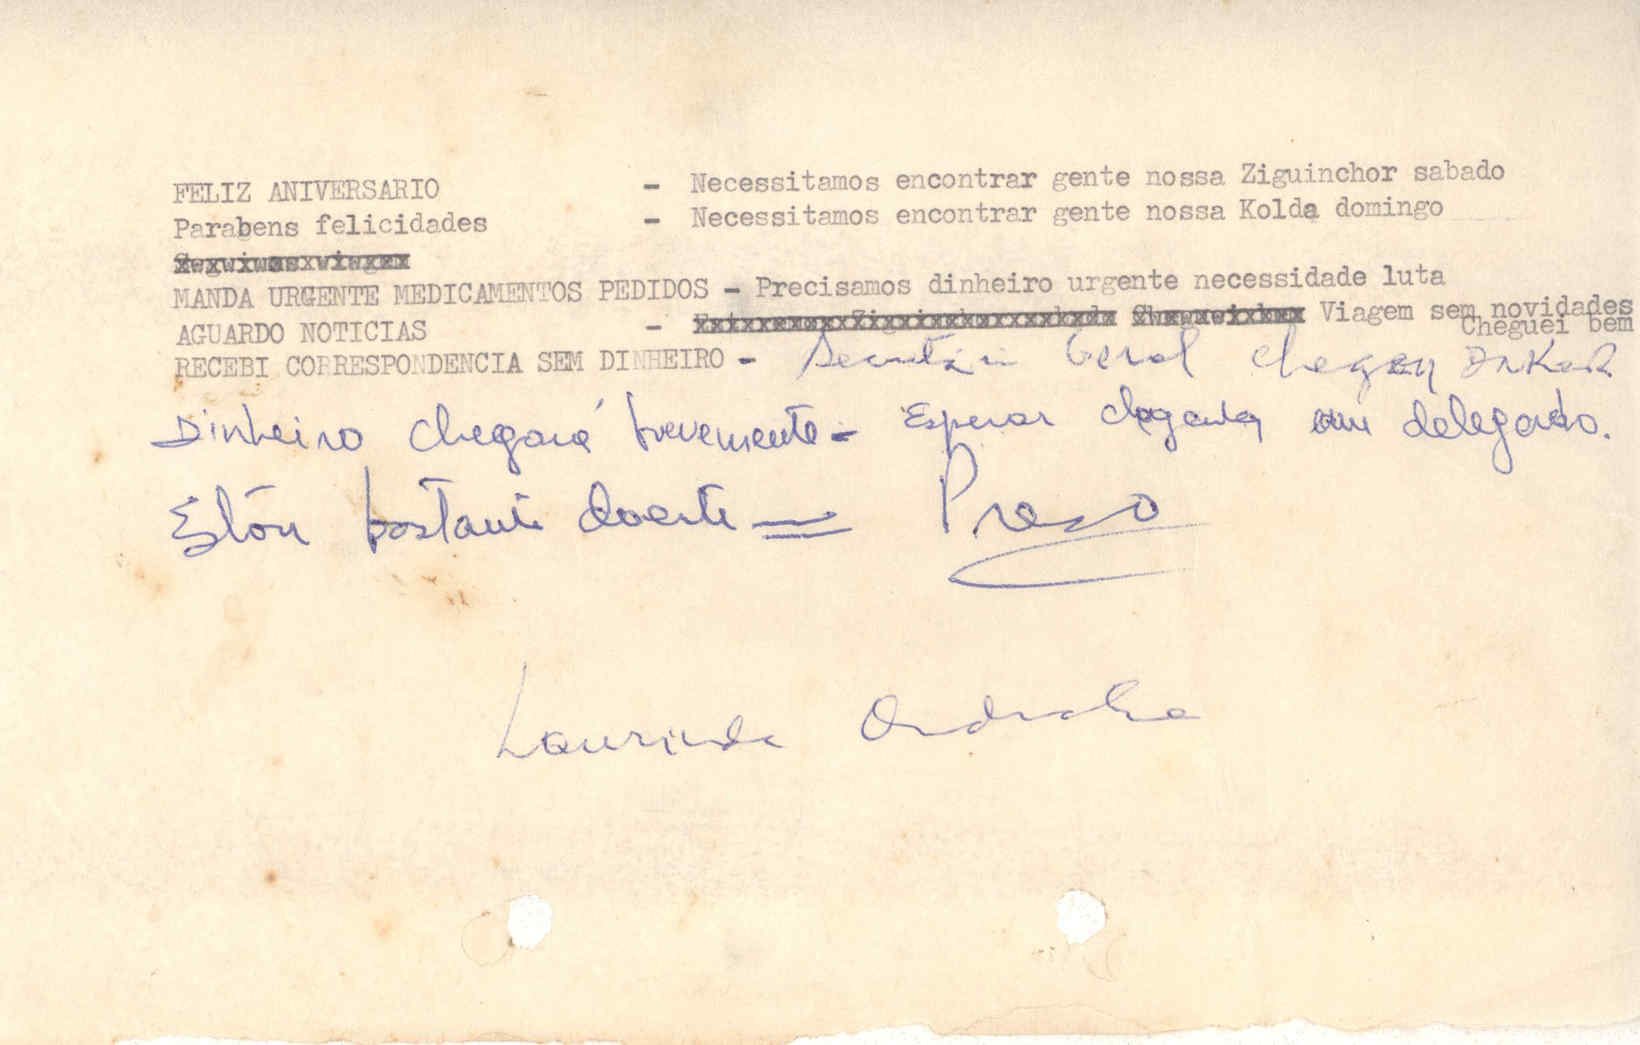 FELIZ ANIVERSARIO - Necessitamos encontrar gente nossa Ziguinchor sabado
Parabens felicidades - Necessitamos encontrar gente nossa Kolda domingo
MANDA URGENTE MEDICAMENTOS PEDIDOS - Precisamos dinheiro urgente necessidade luta
AGUARDO NOTICIAS - Viagem sem novidades
Cheguei bem
RECEBI CORRESPONDENCIA SEM DINHEIRO - Secretário Geral chegou DAKAR
Dinheiro chegará brevemente - Esperar chegada um delegado.
Estou bastante doente = Preso
Laurinda Andrade